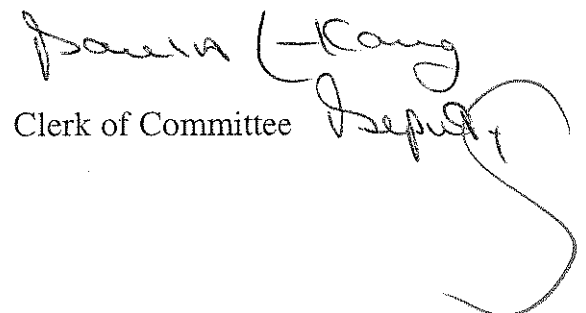 Kang
Clerk of Committee Deputy